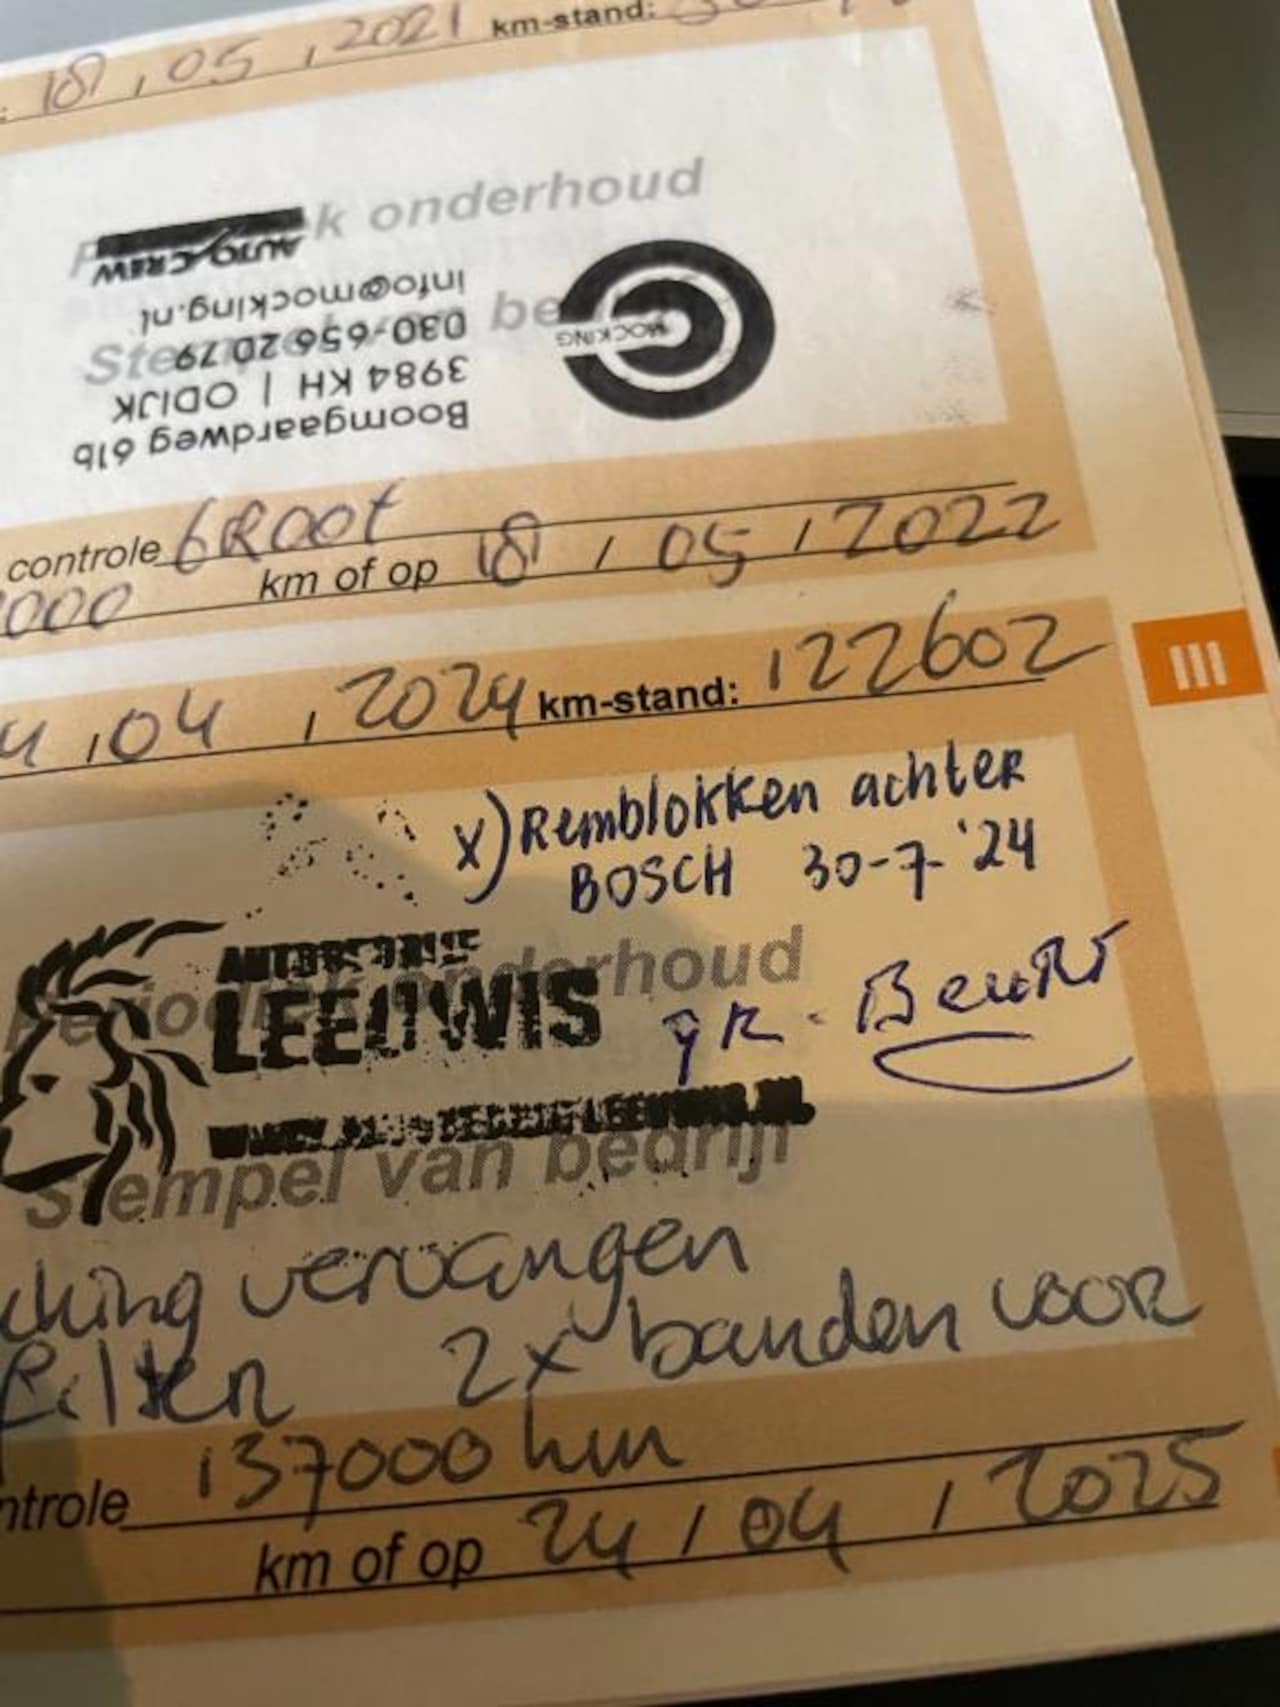 18, 05, 2021 km-stand:
k onderhoud
AUTO CREW
info@mocking.nl
030-656 20 79
3984 KH | ODIJK
Boomgaardweg 61b
MOCKING
controle GROOT
000 km of op 18 / 05 / 2022
4, 04, 2024 km-stand: 122602
III
x) Remblokken achter
BOSCH 30-7-'24
LEEUWIS
gR. Beukt
Stempel van bedrijf
vervangen
filter 2x banden voor
ntrole 137000 km
km of op 24 / 04 / 2025